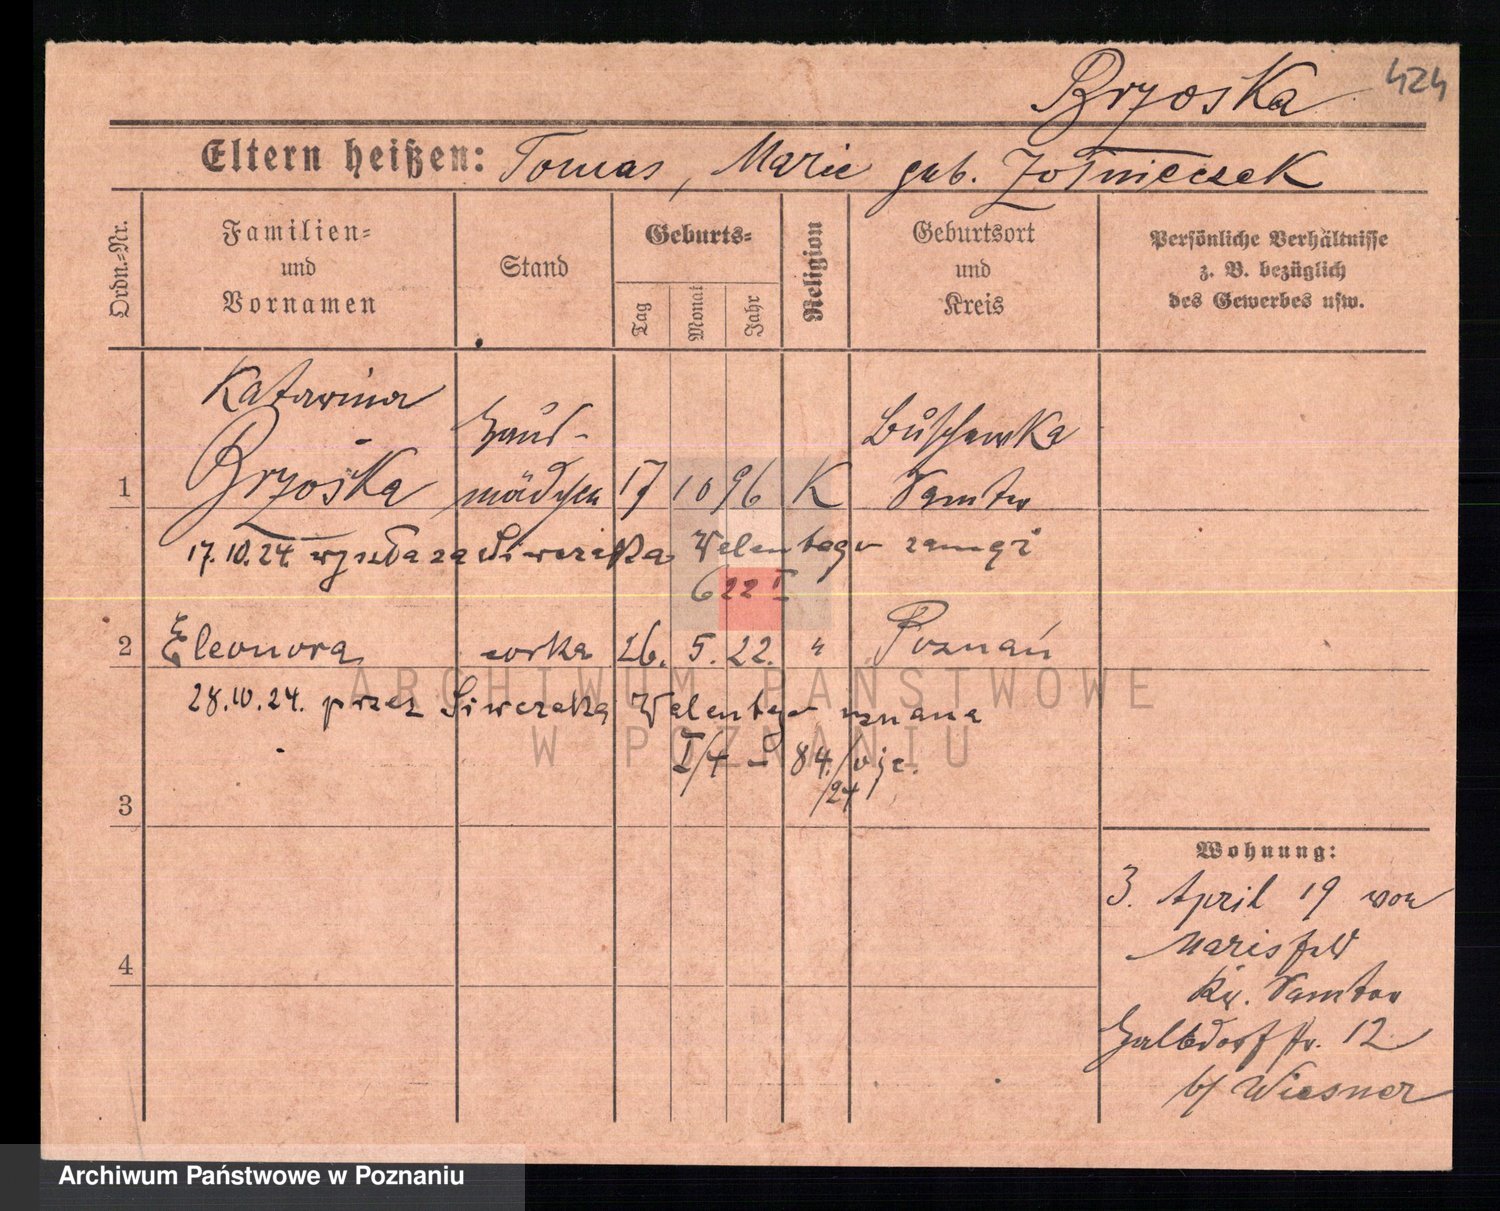 Brzoska 424
Eltern heißen: Tomas, Marie geb. Żołnieczek
Ordn.-Nr.
Familien- und Vornamen
Stand
Geburts-
Tag
Monat
Jahr
Religion
Geburtsort und Kreis
Persönliche Verhältnisse z. B. bezüglich des Gewerbes usw.
Katarina
Brzoska
Haus-
mädchen
1 17 10 96 K
Buschewka
Samter
17.10.24 wyszła za Siwczaka Walentego zamąż
622 I
2 Eleonora corka 26. 5. 22. " Poznań
28.10.24. przez Siwczaka Walentego uznana
I/4 - 84./
/24
3
4
Wohnung:
3. April 19 von
Marisfeld
Kr. Samter
Halbdorfstr. 12
b/ Wiesner
ARCHIWUM PAŃSTWOWE
W POZNANIU
Archiwum Państwowe w Poznaniu